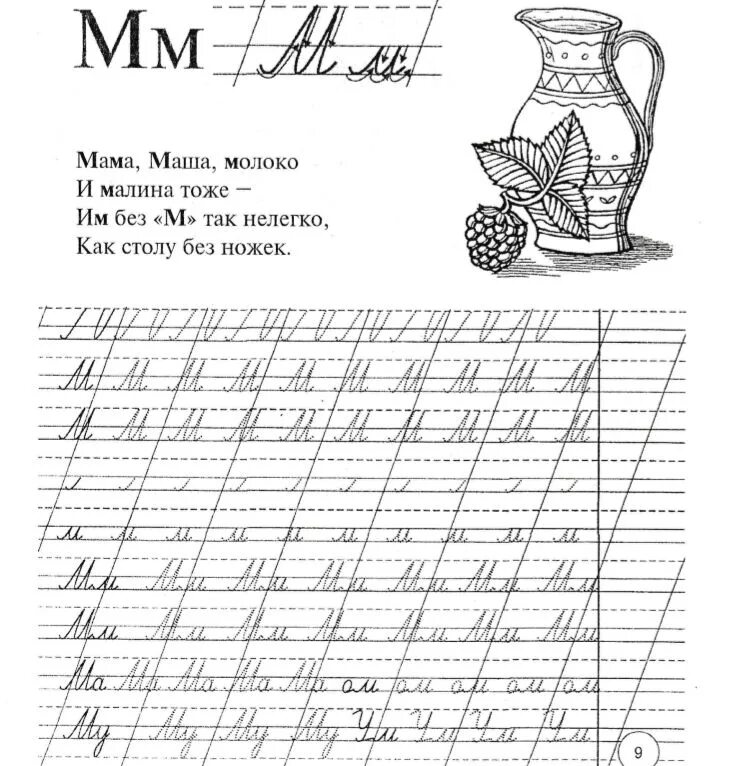 Мм Мм
Мама, Маша, молоко
И малина тоже –
Им без «М» так нелегко,
Как столу без ножек.
М М М М М М М М М М
М М М М М М М М М М
м м м м м м м м м м
Мм Мм Мм Мм Мм Мм Мм
Мм Мм Мм Мм Мм Мм Мм
Ма Ма Ма Ма Ма ом ом ом ом ом
Му Му Му Му Ум Ум Ум Ум
9